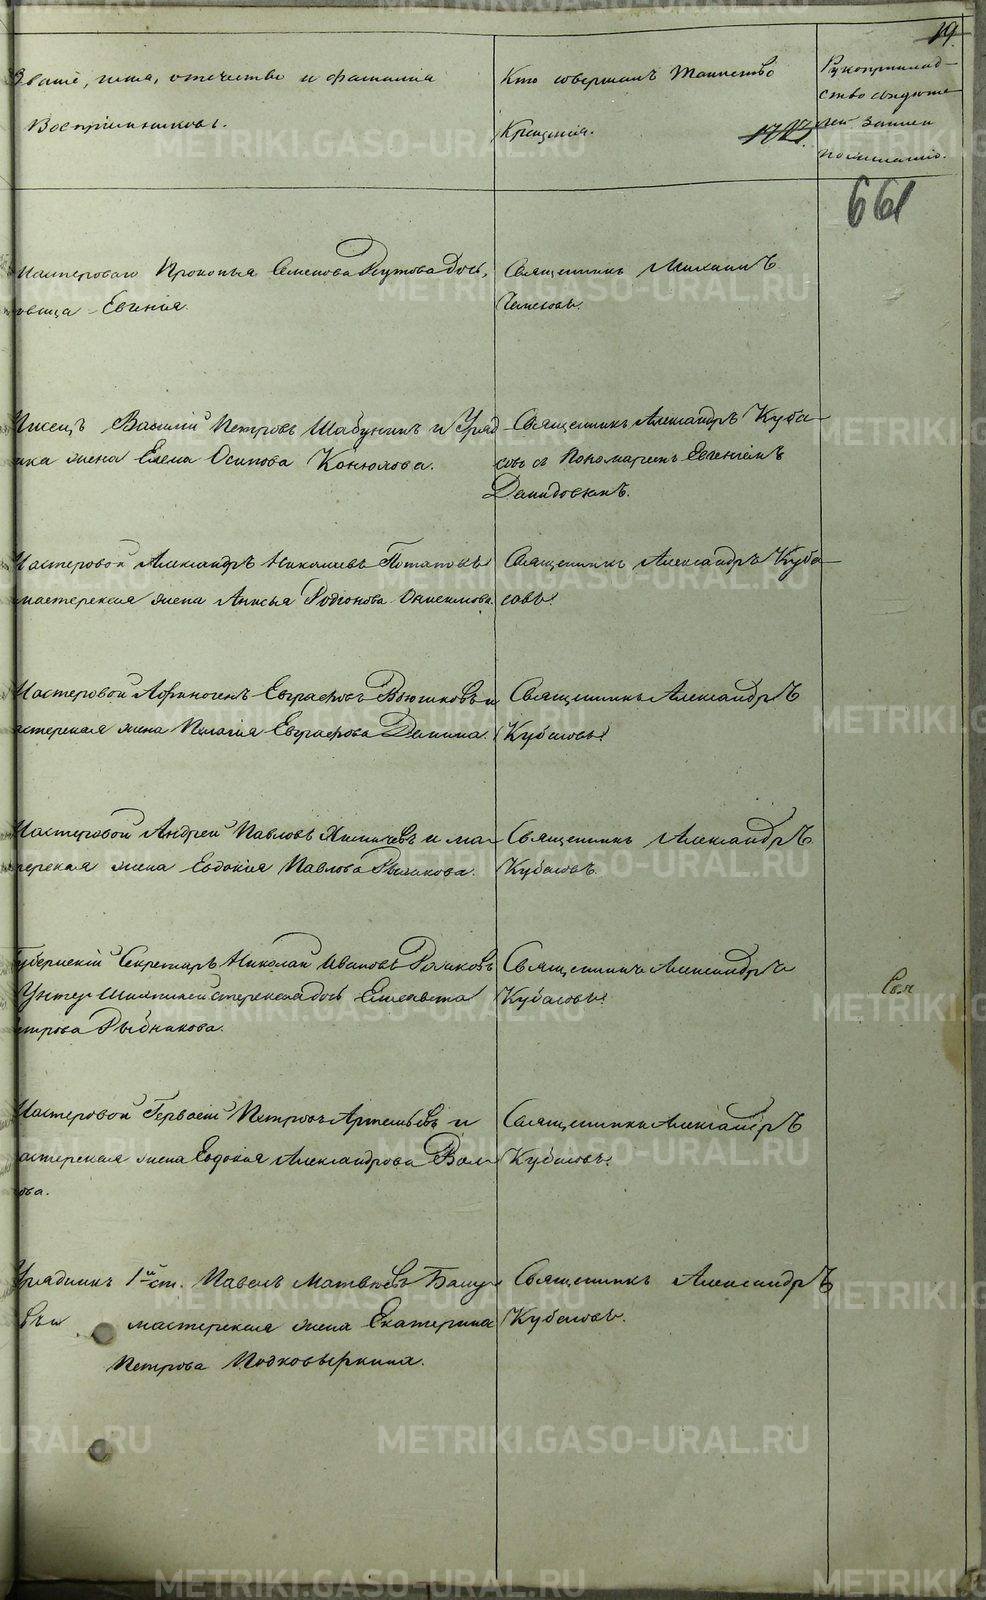 19.
Званіе, имя, отчество и фамилія
Воспріемниковъ.
Кто совершалъ Таинство
Крещенія.
Рукоприклад-
ство свидѣте
лей записи
по желанію.
661
мастероваго Прокопья Семенова Реутова дочь,
Евгенія.
Священникъ Михаилъ
Писецъ Василій Петровъ Шабунинъ и Уряд
ника жена Елена Осипова Конюхова.
Священникъ Александръ Куба-
совъ съ Пономаремъ Евгеніемъ
Давидовымъ.
Мастеровой Александръ Николаевъ Потаповъ
мастерская жена Анисья Родіонова Онисимова.
Священникъ Александръ Куба-
совъ.
Мастеровой Афиногенъ Евграфовъ и
мастерская жена Пелагія Евграфова Демина.
Священникъ Александръ
Кубасовъ.
Мастеровой Андрей Павловъ и мас
терская жена Евдокія Павлова Рыжикова.
Священникъ Александръ
Кубасовъ.
Губернскій Секретарь Николай Ивановъ
Унтер Шихтмейстерская дочь Елисавета
Петрова Рыбникова.
Священникъ Александръ
Кубасовъ.
Свя
Мастеровой Гервасій Петровъ Артемьевъ и
мастерская жена Евдокія Александрова Вол-
кова.
Священникъ Александръ
Кубасовъ.
Урядникъ 1й ст. Павелъ Матвѣевъ
мастерская жена Екатерина
Петрова Подковыркина.
Священникъ Александръ
Кубасовъ.
METRIKI.GASO-URAL.RU